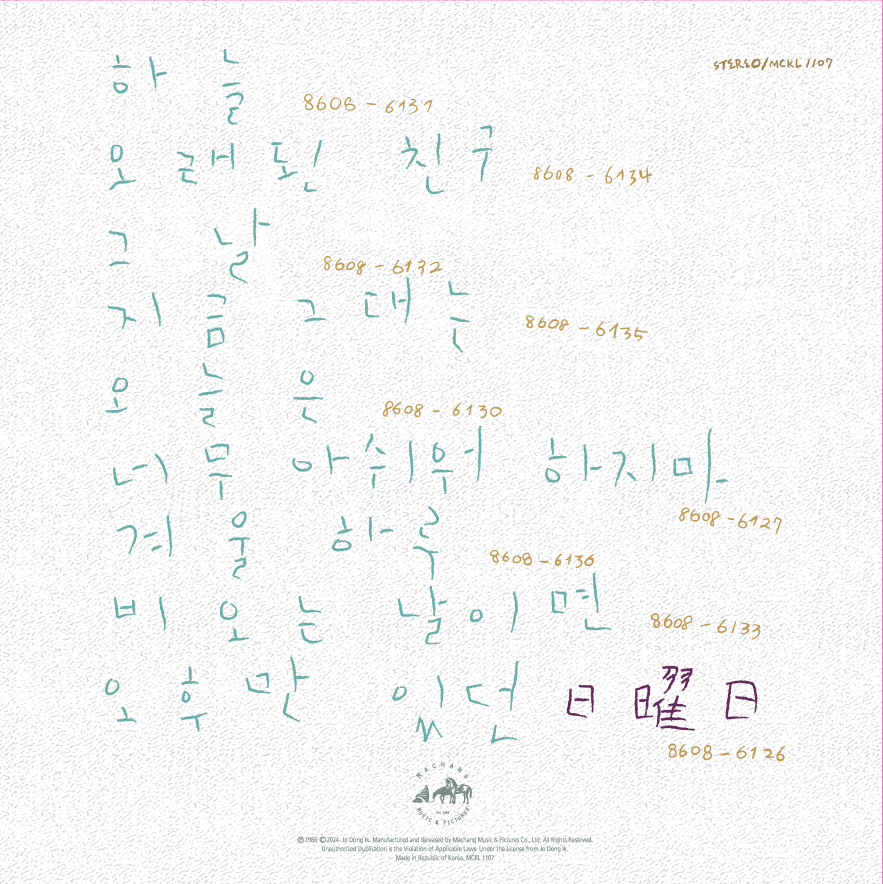 STEREO/MCKL 1107
하늘
8608-6131
오래된 친구
8608-6134
그날
8608-6132
지금 그대는
8608-6135
오늘은
8608-6130
너무 아쉬워 하지마
8608-6127
겨울 하루
8608-6136
비 오는 날이면
8608-6133
오후만 있던 日曜日
8608-6126
MACHANG
MUSIC & PICTURES
℗ 1986 ©2024. Jo Dong Ik. Manufactured and Released by Machang Music & Pictures Co., Ltd. All Rights Reserved.
Unauthorized Duplication is the Violation of Applicable Laws. Under the License from Jo Dong Ik.
Made in Republic of Korea, MCKL 1107